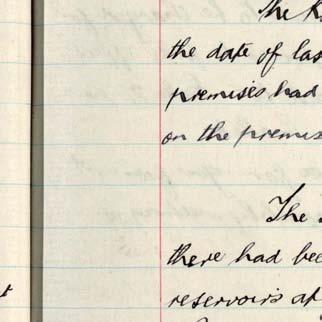 The
the date of las
premises had
on the premis
The
there had bee
reservoirs at